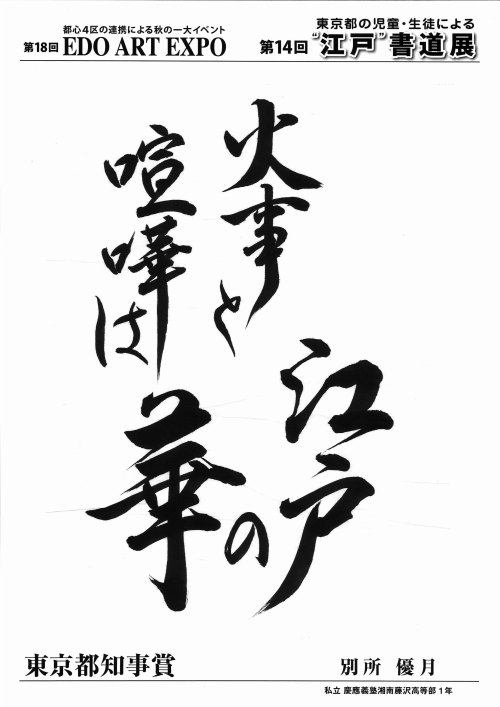 都心4区の連携による秋の一大イベント
第18回 EDO ART EXPO
東京都の児童・生徒による
第14回 “江戸”書道展
火事と
喧嘩は
江戸の
華
東京都知事賞
別所 優月
私立 慶應義塾湘南藤沢高等部1年